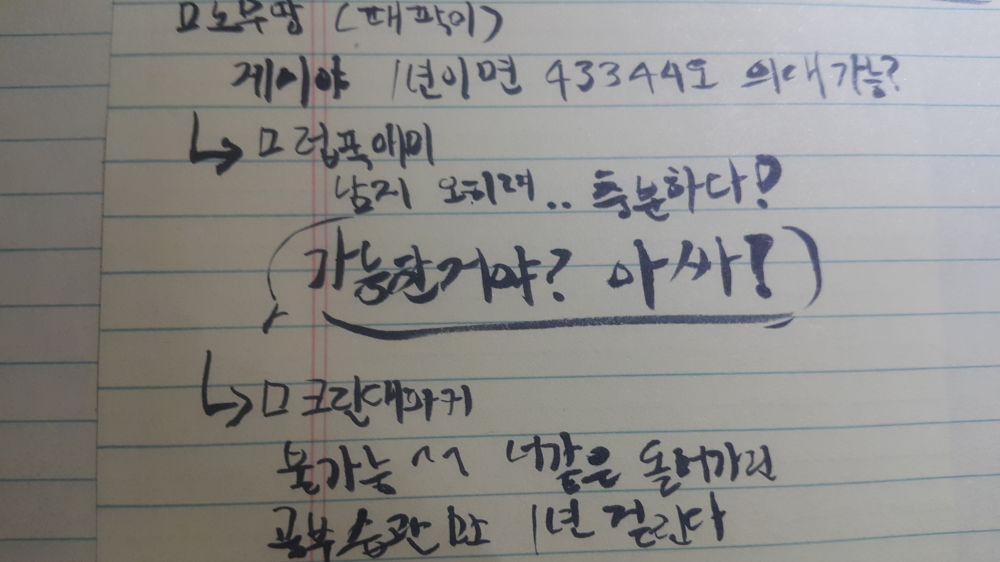 ㅁ노무짱 (대팍이)
게이야 1년이면 43344도 의대가능?
ㅁ럽폭애미
남지 오히려.. 충분하다!
(가능한거야? 아싸!)
ㅁ크린대파키
불가능^^ 너같은 돌머가리런
공부습관만 1년 걸린다